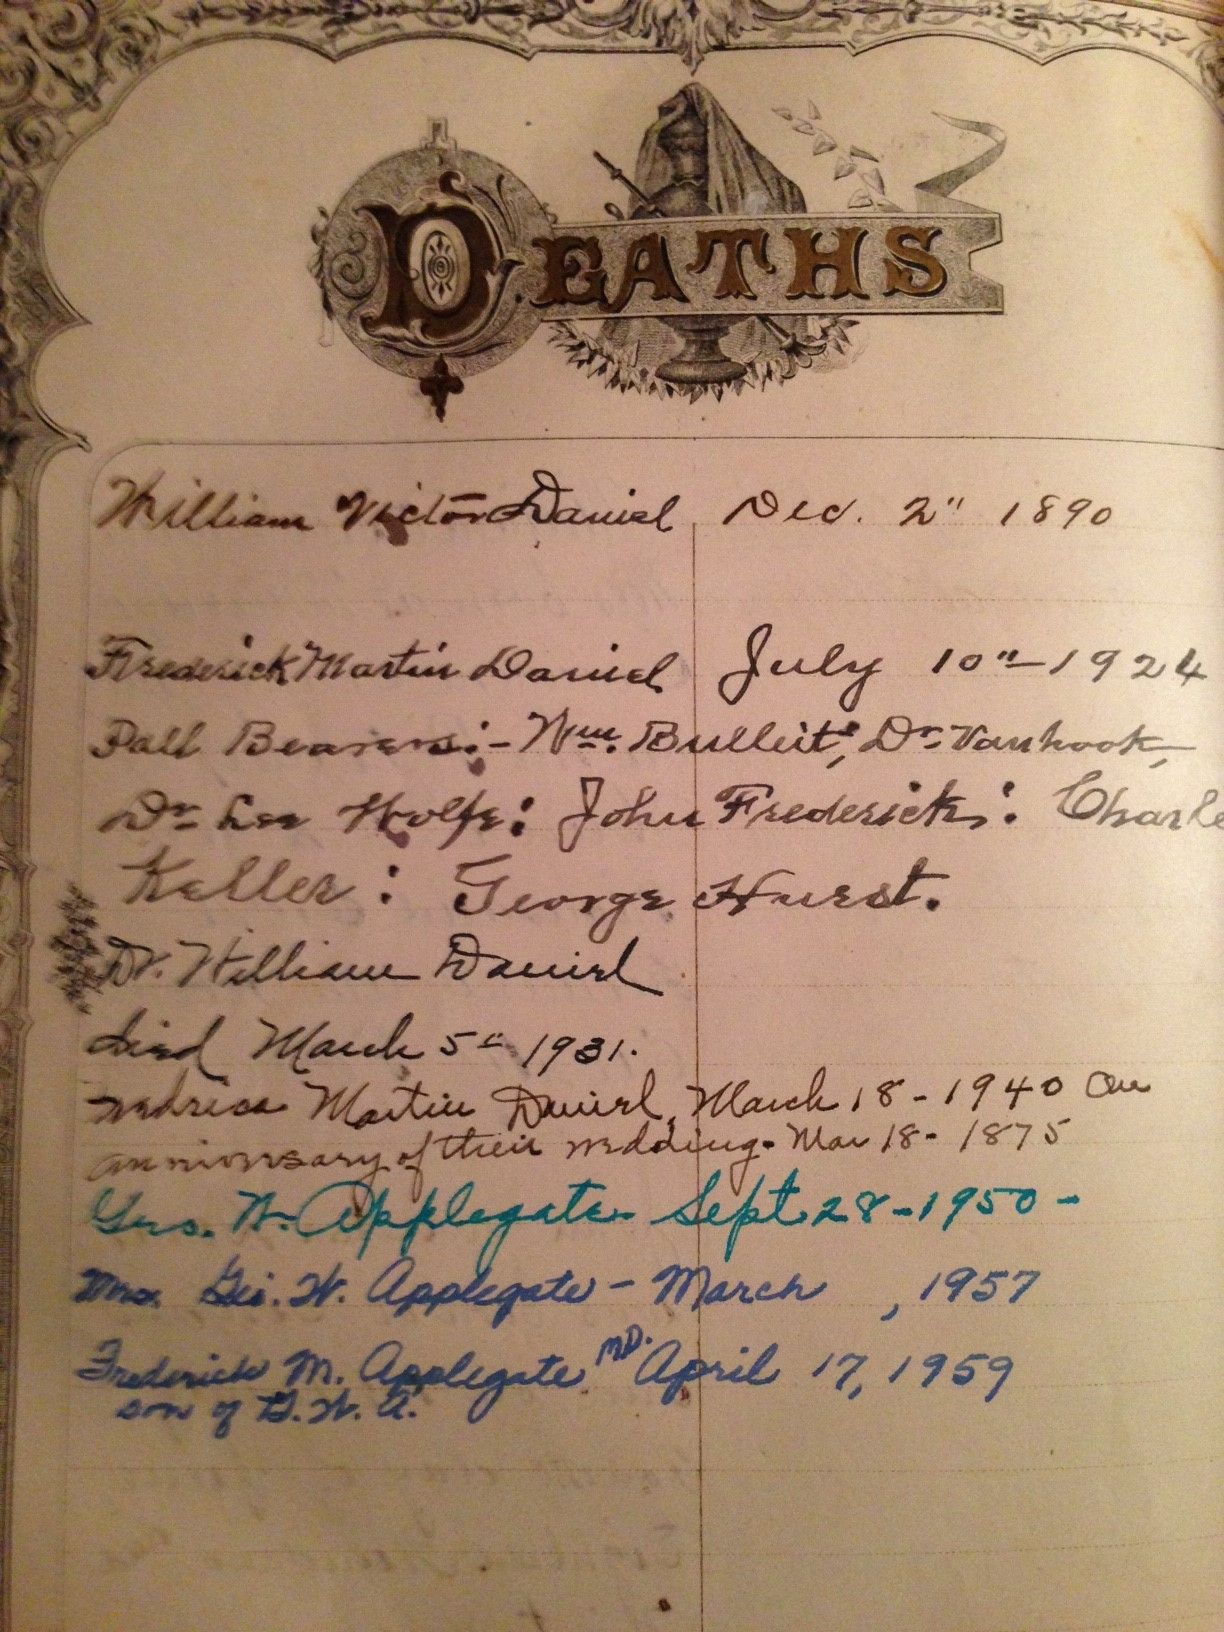 DEATHS
William Victor Daniel Dec. 2" 1890
Frederick Martin Daniel July 10"-1924
Pall Bearers:- Wm. Bulleit; Dr Vanhook,
Dr Lee Wolfe: John Frederick: Charle
Keller: George Hurst.
Dr. William Daniel
died March 5" 1931.
Martin Daniel, March 18-1940 on
anniversary of their wedding-Mar 18-1875
Geo. W. Applegate- Sept 28-1950-
Mrs. Geo. W. Applegate - March , 1957
Frederick M. Applegate MD. April 17, 1959
son of G. W. A.